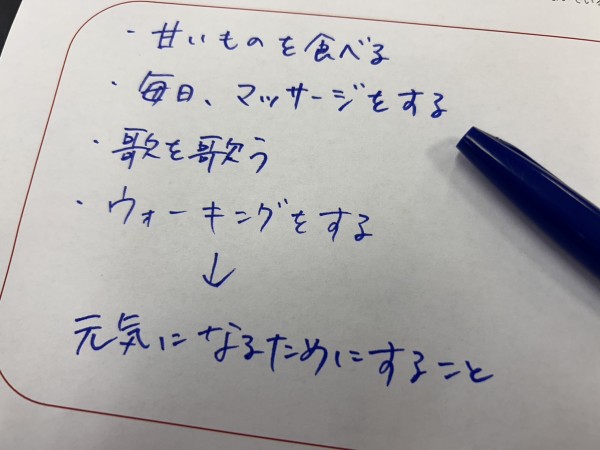 ・甘いものを食べる
・毎日、マッサージをする
・歌を歌う
・ウォーキングをする
↓
元気になるためにすること